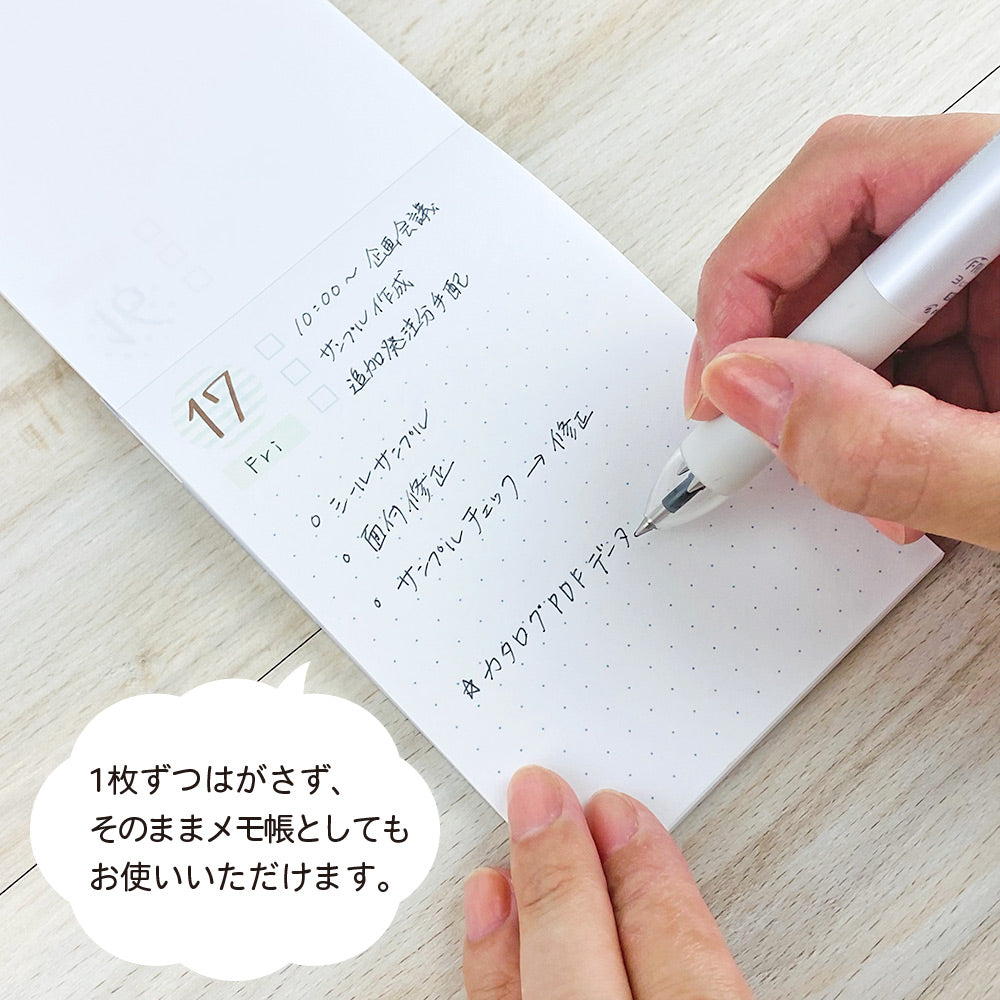 17
Fri
10:00～ 企画会議
サンプル作成
追加発注分手配
○ シールサンプル
○ 面付修正
○ サンプルチェック → 修正
☆ カタログPDFデータ
1枚ずつはがさず、
そのままメモ帳としても
お使いいただけます。